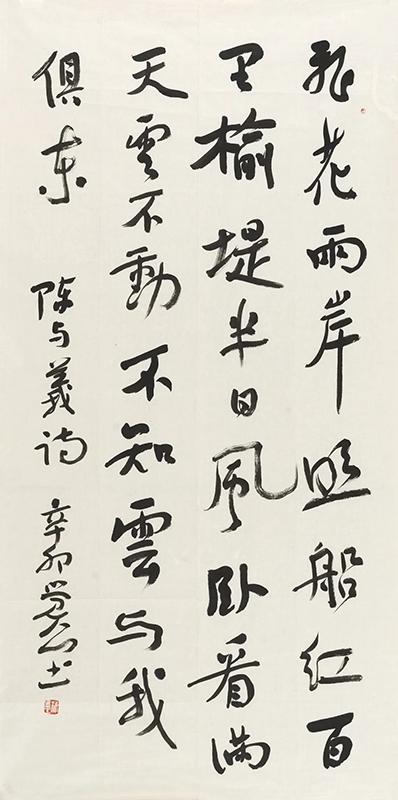 飛花兩岸照船紅百
里榆堤半日風卧看滿
天雲不動不知雲与我
俱東 陈与義詩 辛卯